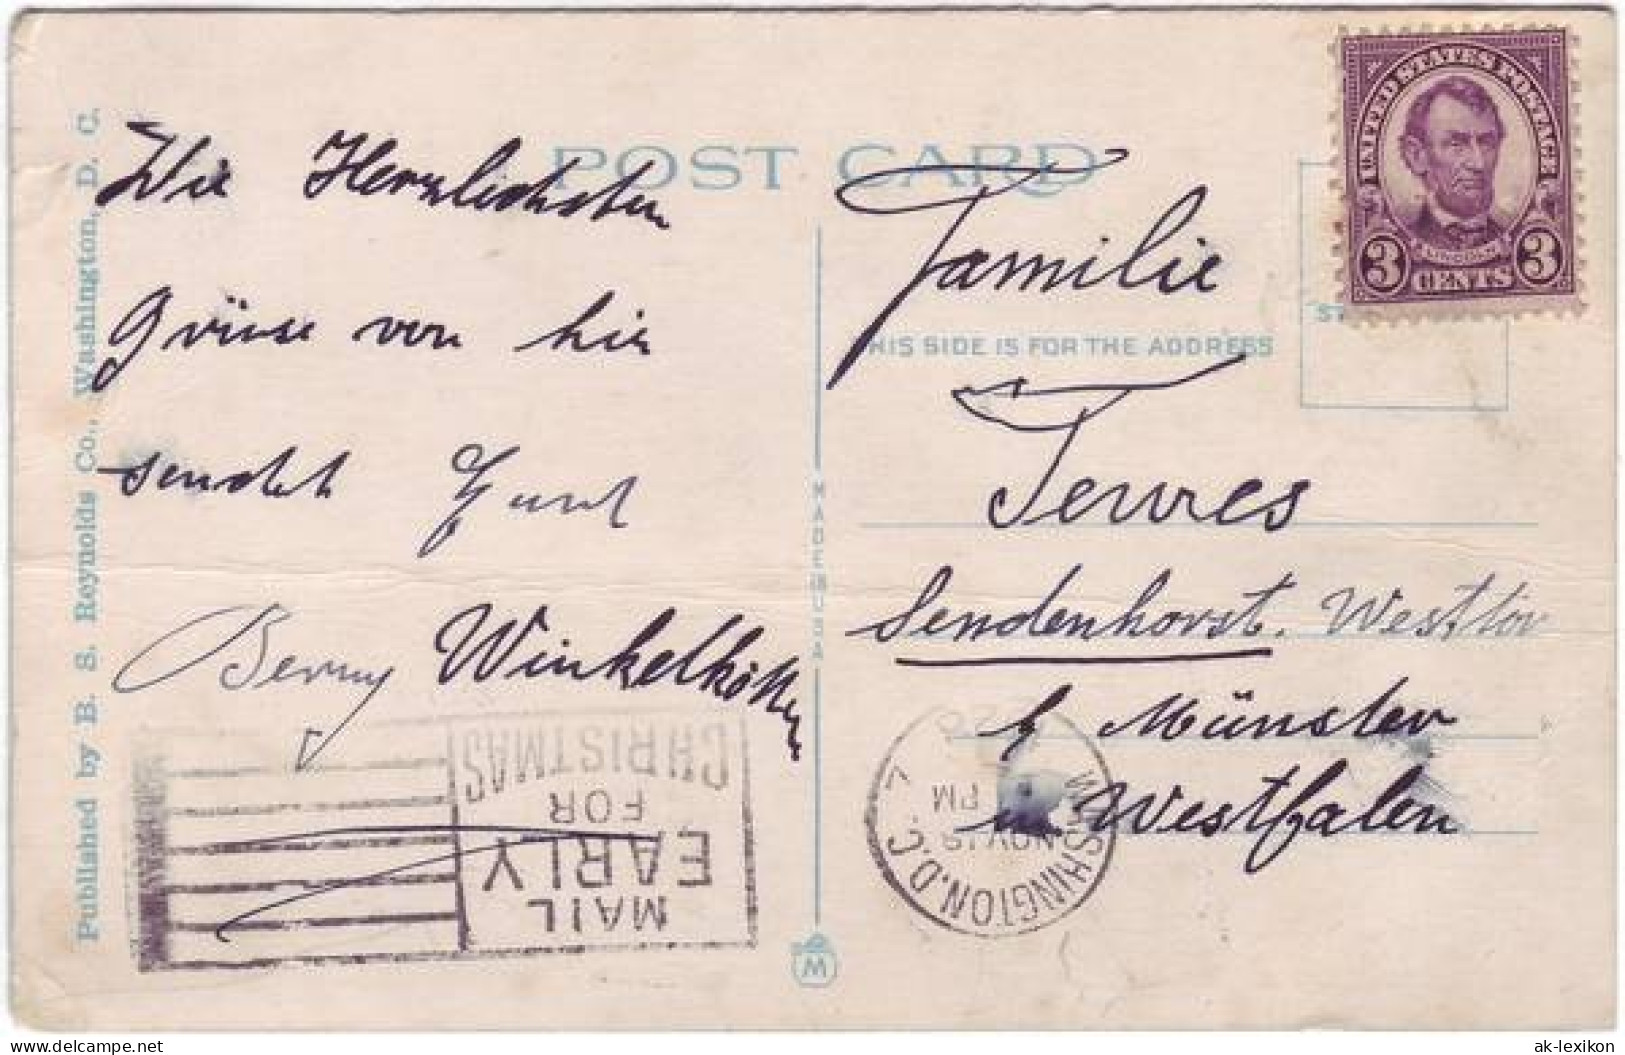 POST CARD
Die Herzlichsten
Grüsse von hir
sendet
Berny Winkelkötter
Familie
THIS SIDE IS FOR THE ADDRESS
Tewes
Sendenhorst.
b/ Münster
in Westfalen
UNITED STATES POSTAGE
LINCOLN
3 CENTS 3
MADE IN U.S.A
Published by B. S. Reynolds Co., Washington, D. C.
MAIL
EARLY
FOR
CHRISTMAS
WASHINGTON, D.C.
NOV 19
PM
M
delcampe.net
ak-lexikon